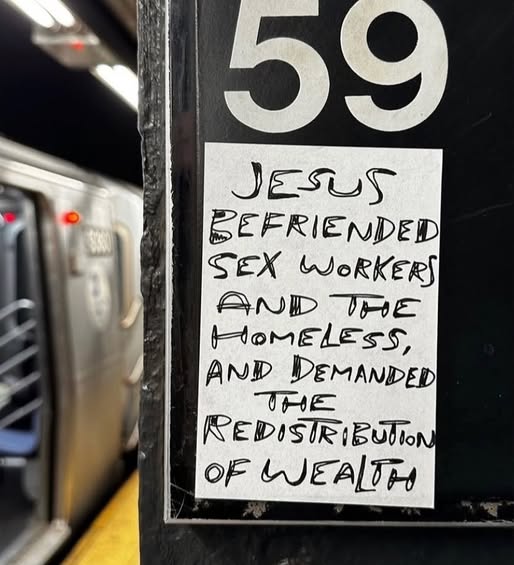 59
JESUS
BEFRIENDED
SEX WORKERS
AND THE
HOMELESS,
AND DEMANDED
THE
REDISTRIBUTION
OF WEALTH